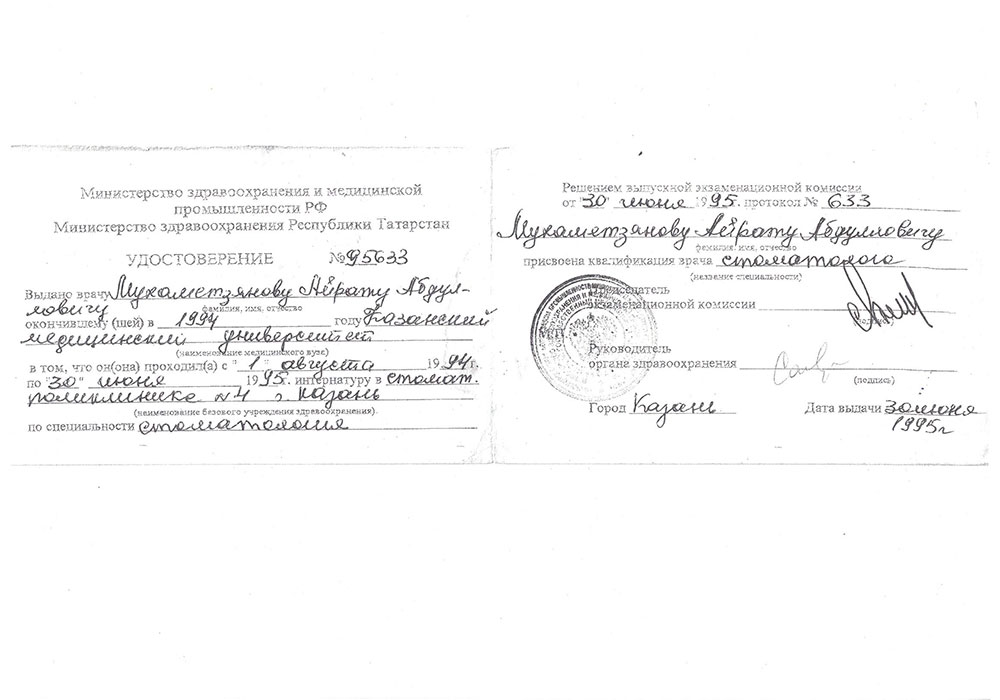 Министерство здравоохранения и медицинской
промышленности РФ
Министерство здравоохранения Республики Татарстан
УДОСТОВЕРЕНИЕ №95633
Выдано врачу Мухаметзянову Айрату Абдул-
ловичу
фамилия, имя, отчество
окончившему (шей) в 1994 году Казанский
медицинский университет
(наименование медицинского вуза)
в том, что он(она) проходил(а) с "1" августа 1994г.
по "30" июня 1995г. интернатуру в стомат.
поликлинике №4 г. Казань
(наименование базового учреждения здравоохранения).
по специальности стоматология
Решением выпускной экзаменационной комиссии
от "30" июня 1995г. протокол № 633
Мухаметзянову Айрату Абдулловичу
фамилия, имя, отчество
присвоена квалификация врача стоматолога
(название специальности)
Председатель
экзаменационной комиссии
Руководитель
органа здравоохранения
(подпись)
Город Казань Дата выдачи 30 июня
1995г